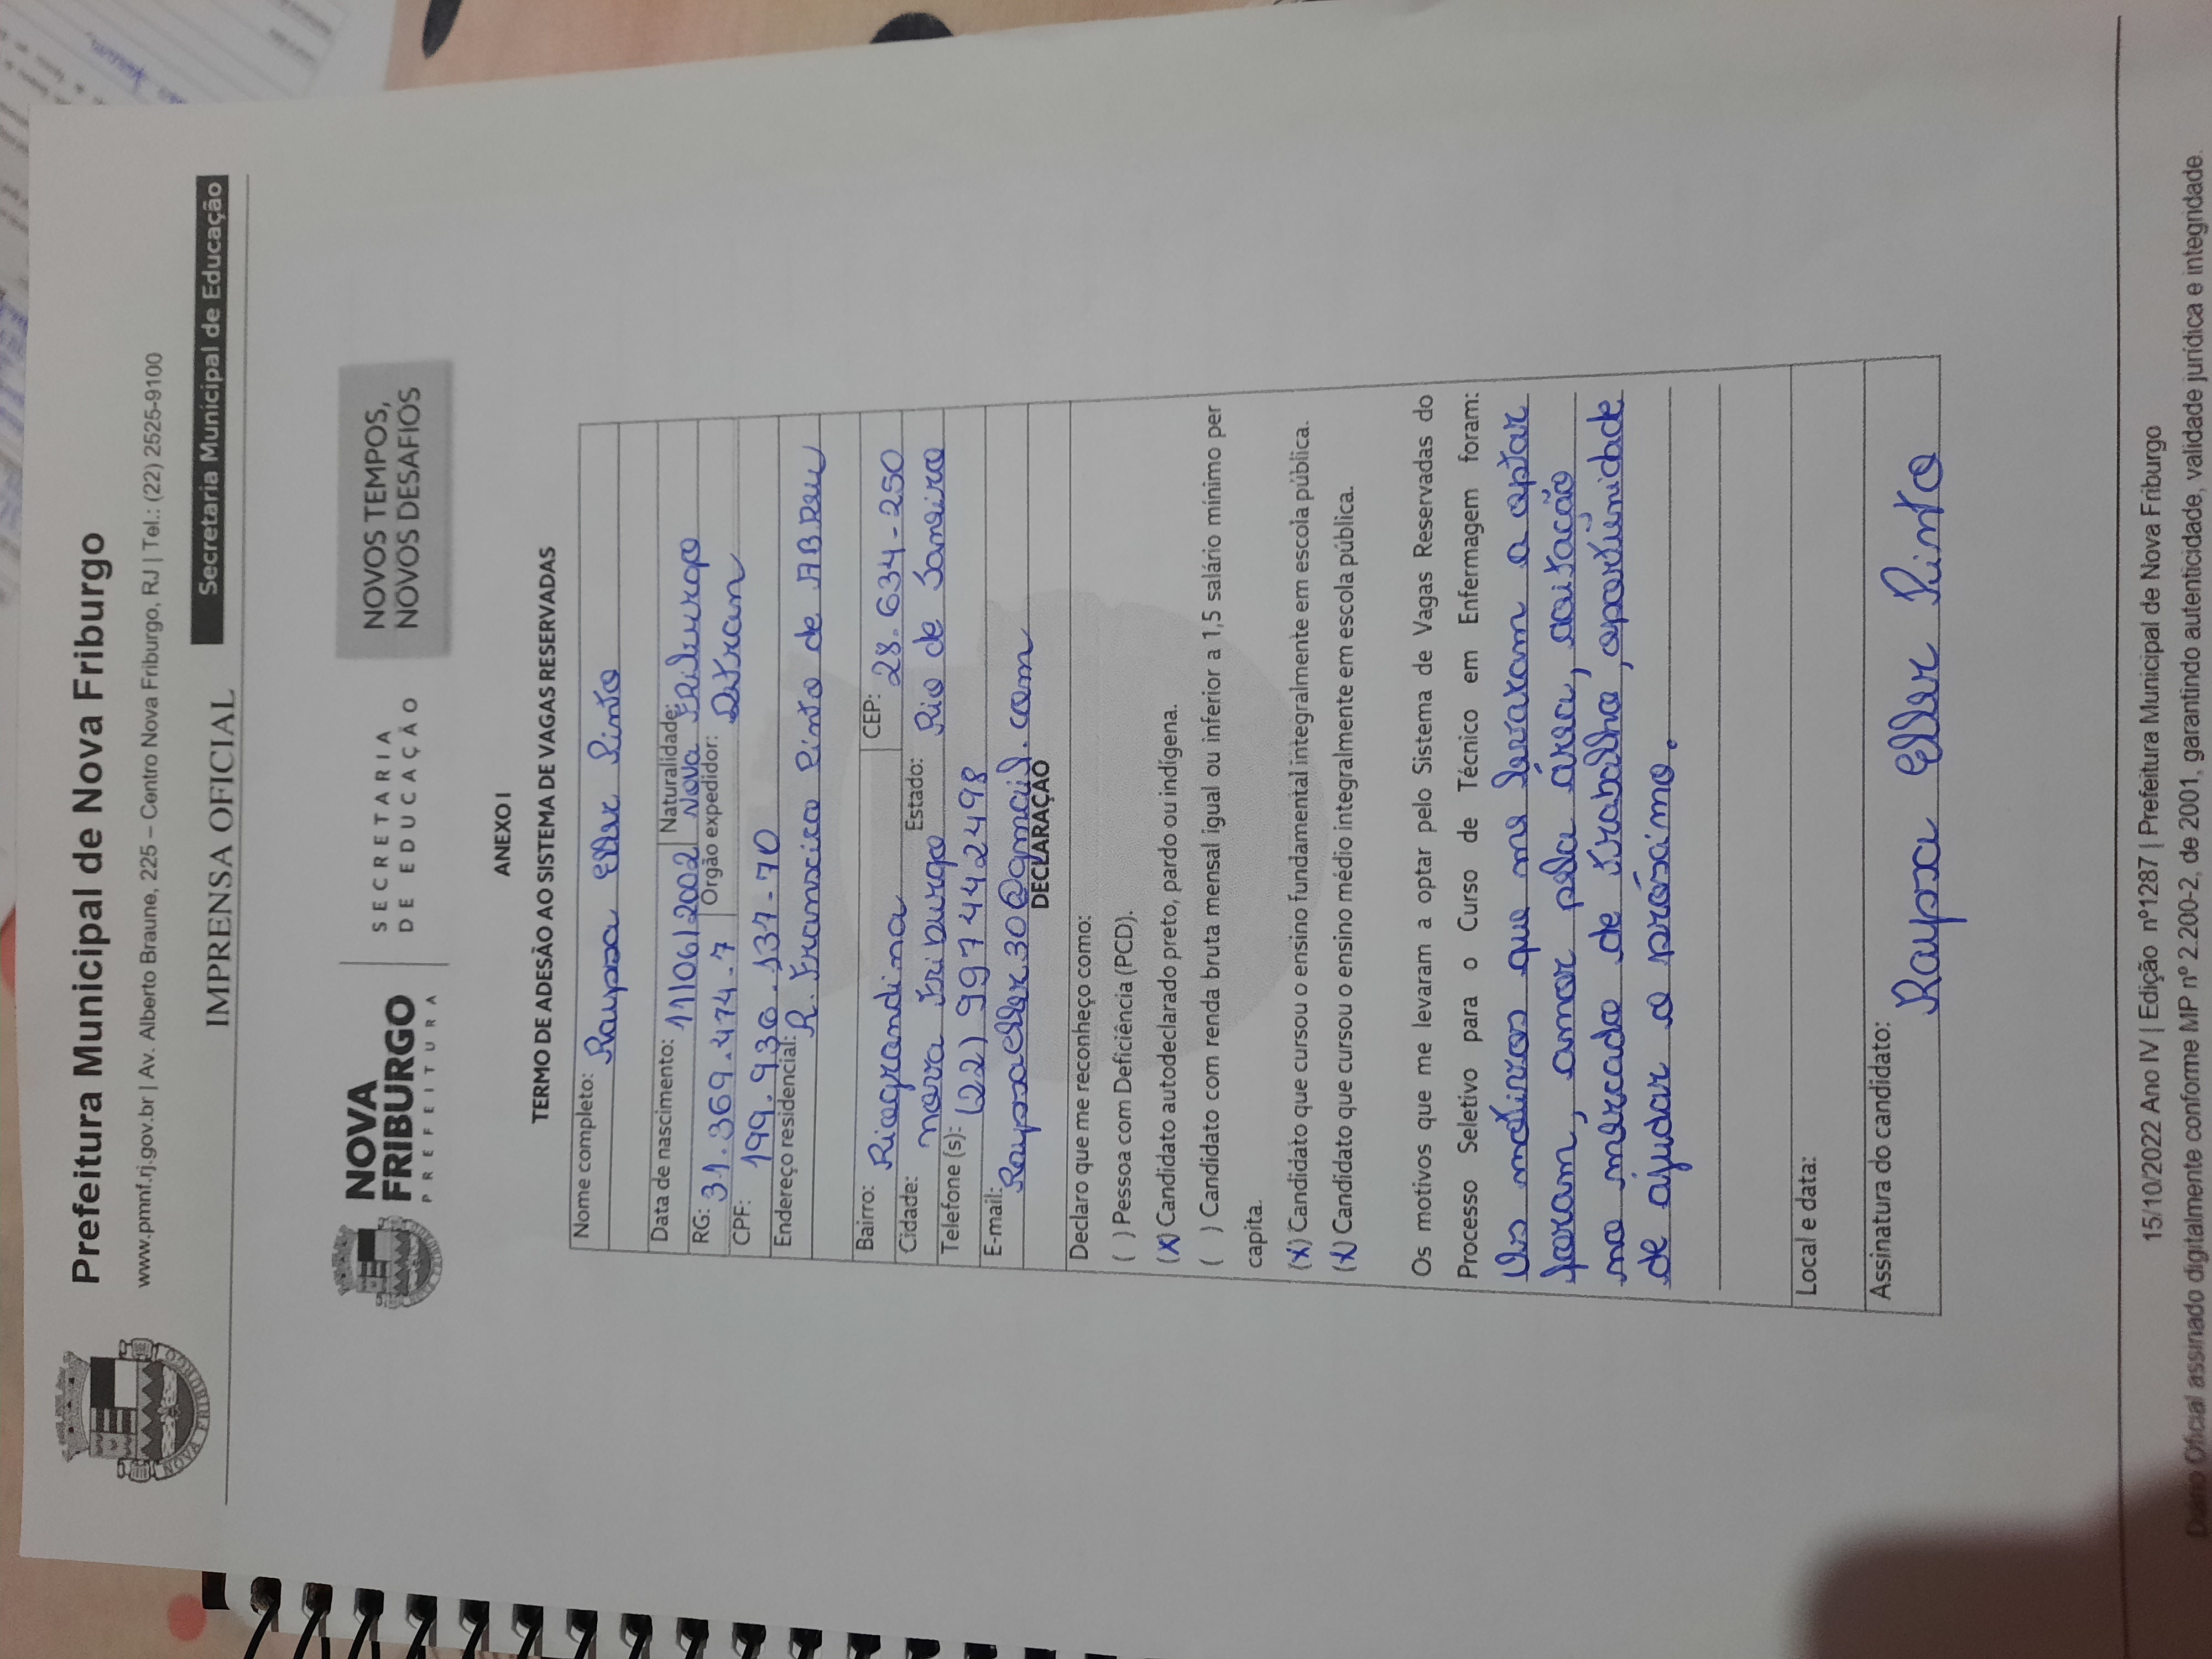 Prefeitura Municipal de Nova Friburgo
www.pmnf.rj.gov.br | Av. Alberto Braune, 225 – Centro Nova Friburgo, RJ | Tel.: (22) 2525-9100
IMPRENSA OFICIAL Secretaria Municipal de Educação
NOVA FRIBURGO
NOVA
FRIBURGO
PREFEITURA
SECRETARIA
DE EDUCAÇÃO
NOVOS TEMPOS,
NOVOS DESAFIOS
ANEXO I
TERMO DE ADESÃO AO SISTEMA DE VAGAS RESERVADAS
Nome completo: Rayssa Eller Pinto
Data de nascimento: 11/06/2002 Naturalidade: Nova Friburgo
RG: 31.369.474-7 Órgão expedidor: Detran
CPF: 199.930.137-70
Endereço residencial: R. Francisco Pinto de ABReu
Bairro: Riograndina CEP: 28.634-250
Cidade: Nova Friburgo Estado: Rio de Janeiro
Telefone (s): (22) 997442498
E-mail: Rayssaeller30@gmail.com
DECLARAÇÃO
Declaro que me reconheço como:
( ) Pessoa com Deficiência (PCD).
(X) Candidato autodeclarado preto, pardo ou indígena.
( ) Candidato com renda bruta mensal igual ou inferior a 1,5 salário mínimo per
capita.
(X) Candidato que cursou o ensino fundamental integralmente em escola pública.
(X) Candidato que cursou o ensino médio integralmente em escola pública.
Os motivos que me levaram a optar pelo Sistema de Vagas Reservadas do
Processo Seletivo para o Curso de Técnico em Enfermagem foram:
Os motivos que me levaram a optar
foram, amor pela area, aceitação
no mercado de trabalho, oportunidade
de ajudar o próximo.
Local e data:
Assinatura do candidato: Rayssa Eller Pinto
15/10/2022 Ano IV | Edição nº1287 | Prefeitura Municipal de Nova Friburgo
Diário Oficial assinado digitalmente conforme MP nº 2.200-2, de 2001, garantindo autenticidade, validade jurídica e integridade.